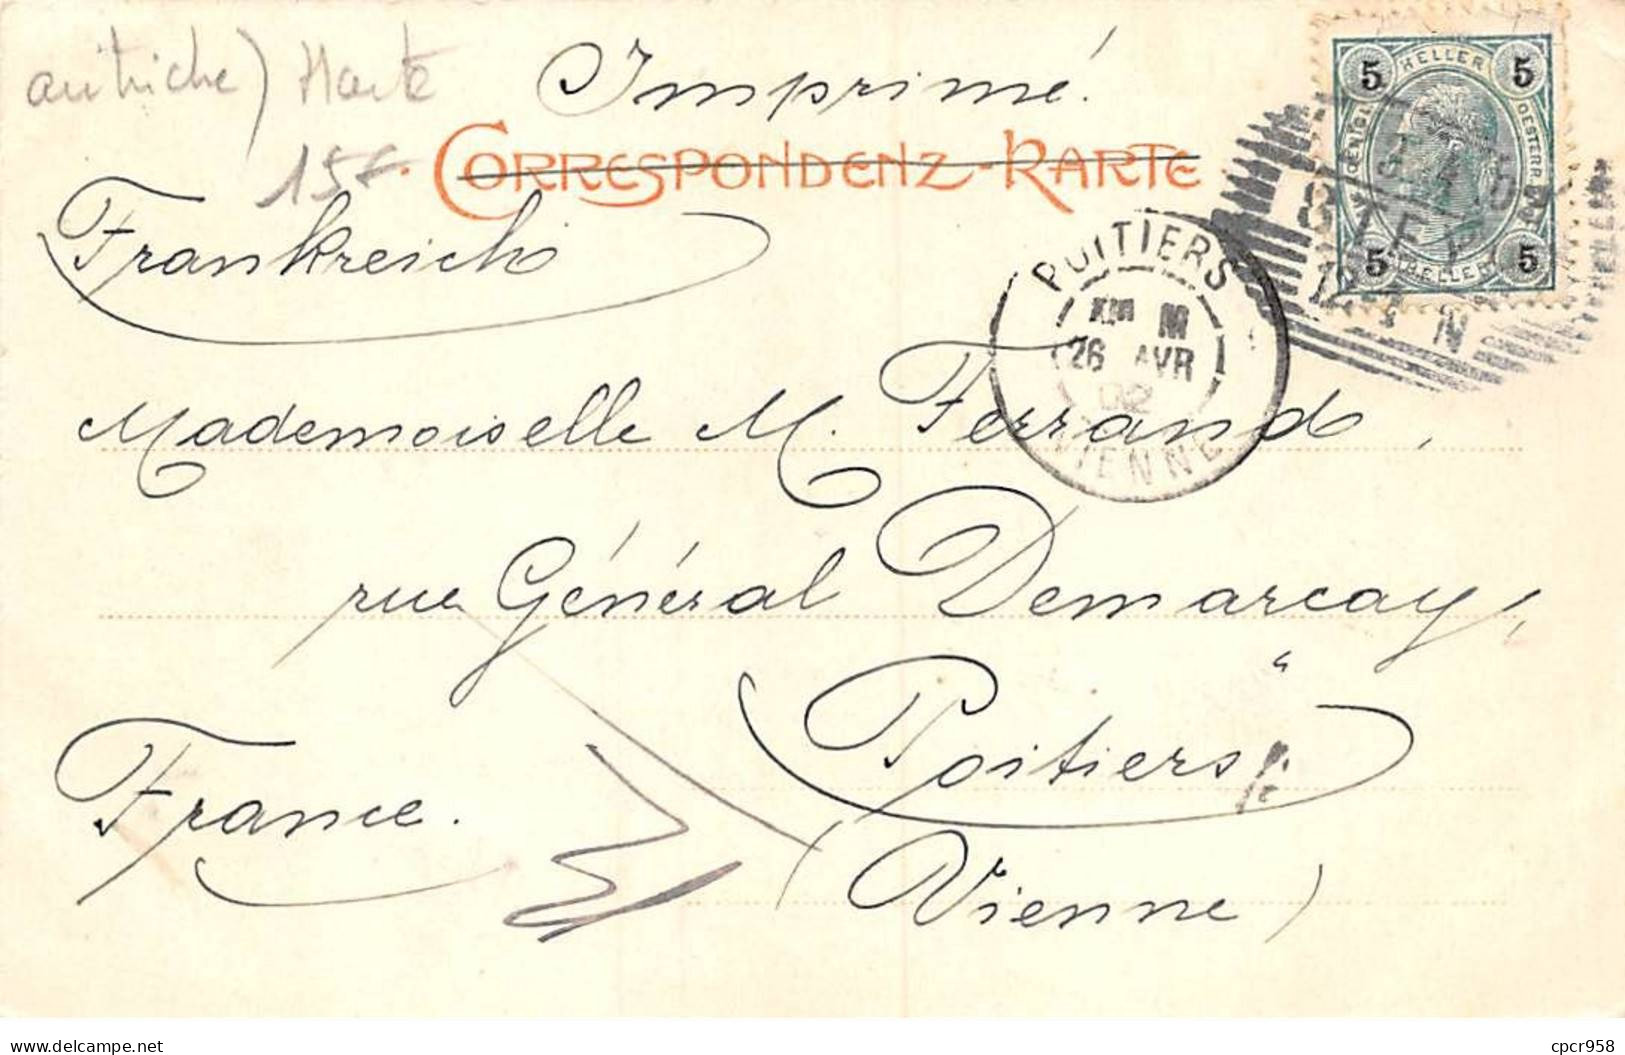 autriche) Harte
Imprimé.
15f.
CORRESPONDENZ-KARTE
Frankreich
5 HELLER 5
5 HELLER 5
POITIERS
26 AVR
02
VIENNE
Mademoiselle M. Ferrand,
rue Général Demarcay,
Poitiers
France.
(Vienne)
www.delcampe.net
cpcr958